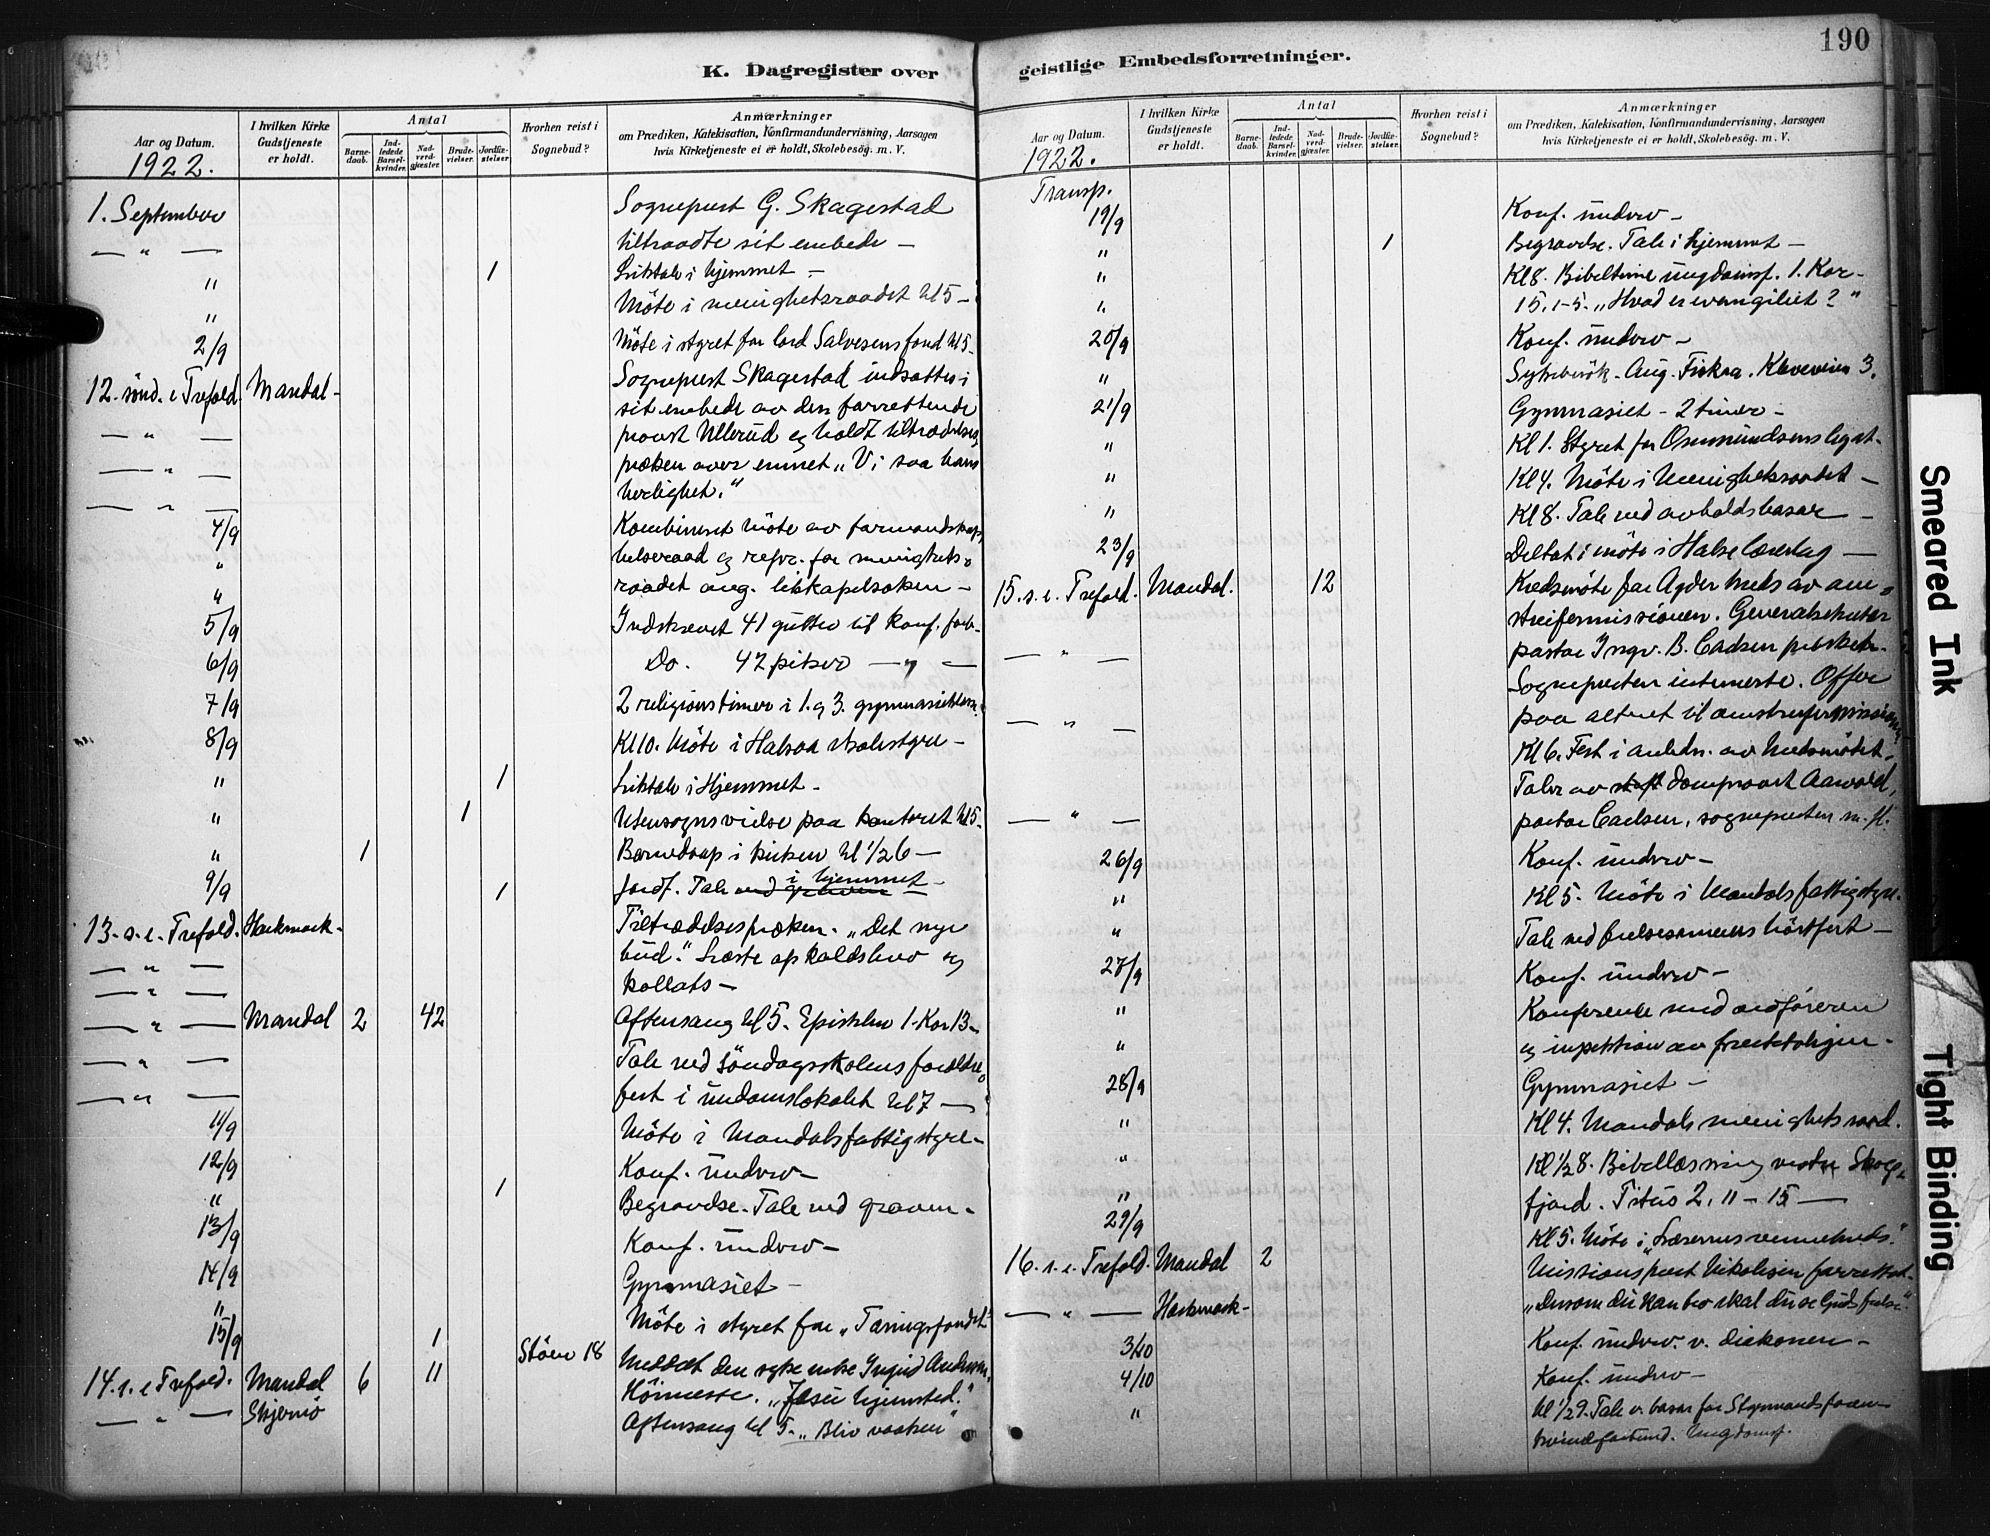 K. Dagregister over
Aar og Datum.
1922.
I hvilken Kirke Gudstjeneste er holdt.
Antal
Barnedaab.
Indledede Barselkvinder.
Nadverdgjæster.
Brudevielser.
Jordfæstelser.
Hvorhen reist i Sognebud?
Anmærkninger
om Prædiken, Katekisation, Konfirmandundervisning, Aarsagen
hvis Kirketjeneste ei er holdt, Skolebesög. m. V.
1. September Sogneprest G. Skagestad
— " — tiltraadte sit embede —
" 1 Liktale i hjemmet —
" Möte i menighetsraadet kl 5 —
2/9 Möte i styret for lord Salvesens fond kl 5 —
12. sönd. e Trefold. Mandal — Sogneprest Skagestad indsattes i
— " — sit embede av den forrettende
— " — provst Ullerud og holdt tiltrædelses
— " — præken over emnet „Vi saa hans
herlighet."
4/9 Kombineret möte av formandskap,
" helseraad og repr. for menighets-
" raadet ang. likkapelsaken —
5/9 Indskrevet 41 gutter til konf. forb.
6/9 Do. 42 piker — " —
7/9 2 religionstimer i 1. og 3. gymnasieklasse.
8/9 Kl 10. Möte i Halsaa skolestyre —
" 1 Liktale i Hjemmet —
" 1 Utensogns vielse paa kontoret kl 5.
" 1 Barnedaap i kirken kl 1/2 6 —
9/9 1 Jordf. Tale ved graven i hjemmet —
13. s. e. Trefold. Harkmark. Tiltrædelsespræken. „Det nye
— " — bud." Læste op kaldsbrev og
— " — kollats —
— " — Mandal 2 42 Aftensang kl 5. Epistelen 1. Kor 13 —
— " — Tale ved Söndagsskolens forældre-
— " — fest i undomslokalet kl 7 —
11/9 Möte i Mandals fattigstyre —
12/9 Konf. underv —
" 1 Begravelse. Tale ved graven —
13/9 Konf. underv —
14/9 Gymnasiet —
" Möte i styret for „Tæringsfondet"
15/9 1 Stöen 18 Meddelt den syke enke Ingrid Andersen.
14. s. e Trefold. Mandal 6 11 Höimesse. „Jesu hjemsted."
— " — Skjernö Aftensang kl 5. „Bliv vaaken"
geistlige Embedsforretninger.
190
Aar og Datum.
1922.
I hvilken Kirke Gudstjeneste er holdt.
Antal
Barnedaab.
Indledede Barselkvinder.
Nadverdgjæster.
Brudevielser.
Jordfæstelser.
Hvorhen reist i Sognebud?
Anmærkninger
om Prædiken, Katekisation, Konfirmandundervisning, Aarsagen
hvis Kirketjeneste ei er holdt, Skolebesög. m. V.
Transp.
19/9 Konf. underv —
" 1 Begravelse. Tale i hjemmet —
" Kl 8. Bibeltime ungdomsf. 1. Kor.
" 15, 1-5. „Hvad er evangeliet?"
20/9 Konf. underv —
" Sykebesök. Aug. Fiskaa. Kleveveien 3.
21/9 Gymnasiet — 2 timer —
" Kl 1. Styret for Osmundsens legat.
" Kl 4. Möte i Menighetsraadet —
" Kl 8. Tale ved avholdsbasar —
23/9 Deltat i möte i Halse lærerlag —
15. s. e. Trefold. Mandal. 12 Kredsmöte for Agder kreds av san-
streifermissionen. Generalsekretær
— " — pastor Ingv. B. Carlsen prædiket.
Sognepresten intimerte. Offer
— " — paa alteret til omstreifermissionen
Kl 6. Fest i anledn. av kredsmötet.
Taler av domprovst Aarvold,
— " — pastor Carlsen, sognepresten m. fl.
26/9 Konf. underv —
" Kl 5. Möte i Mandals fattigstyre.
" Tale ved frelsesarmeens höstfest —
27/9 Konf. underv —
" Konference med ordföreren
" og inspektion av
28/9 Gymnasiet —
" Kl 4. Mandals menighetsraad.
" Kl 1/2 8. Bibellæsning vestre Skoge-
" fjord. Titus 2, 11-15 —
29/9 Kl 5. Möte i „Læsernes vennekreds."
16. s. e. Trefold. Mandal 2 Missionsprest Nikolaisen forrettet.
— " — Harkmark — „Dersom du kan tro skal du se Guds frelse."
3/10 Konf. underv. v. diakonen —
4/10 Konf. underv —
" Kl 1/2 9. Tale v. basar for Styrmandsforen
kvindeforbund. Ungdomsf.
Smeared Ink
Tight Binding